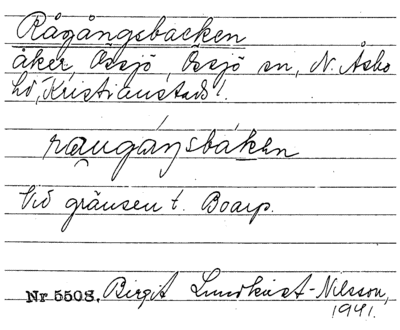 Rågångsbacken
åker, Össjö, Össjö sn, N. Åsbo
hd, Kristianstads l.
raugáŋsbáken
Vid gränsen t. Boarp.
Nr 5508. Birgit Lundkvist-Nilsson,
1941.